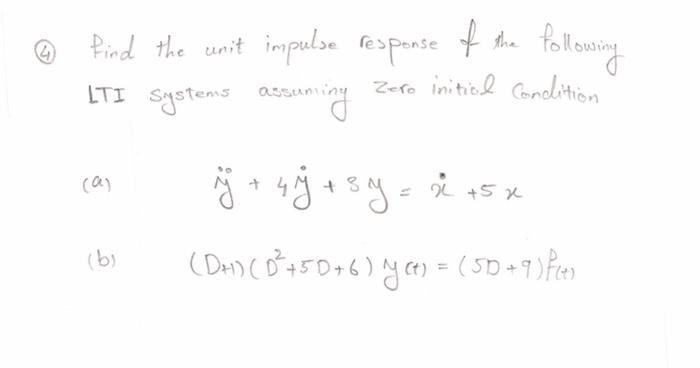 ④ find the unit impulse response of the following
LTI systems assuming zero initial Condition
(a) ÿ + 4ẏ + 3y = ẋ + 5x
(b) (D+1)(D²+5D+6) y(t) = (5D+9)f(t)